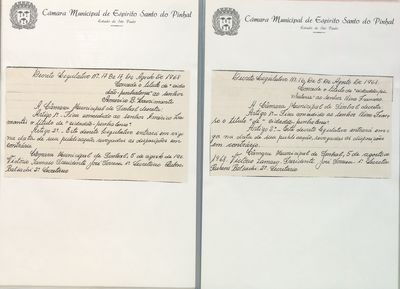 Câmara Municipal de Espírito Santo do Pinhal
Estado de São Paulo
Decreto Legislativo Nº 17 de 17 de Agosto de 1968
Concede o título de "cida
dão-pinhalense" ao senhor
Américo B.
A Câmara Municipal de Pinhal decreta:
Artigo 1º Fica concedido ao senhor Américo
o título de "cidadão-pinhalense".
Artigo 2º Este decreto legislativo entrará em vigor
na data de sua publicação, revogadas as disposições em
contrário.
Câmara Municipal de Pinhal, 5 de agosto de 196
Presidente José 1º Secretário
2º Secretário
Câmara Municipal de Espírito Santo do Pinhal
Estado de São Paulo
Decreto Legislativo Nº 16, de 5 de Agosto de 1968.
Concede o título de "cidadão-pi
nhalense" ao senhor Nino
A Câmara Municipal de Pinhal decreta:
Artigo 1º Fica concedido ao senhor Nino
o título de "cidadão-pinhalense".
Este decreto legislativo entrará em vi
gor na data de sua publicação, revogadas as disposições
em contrário.
Câmara Municipal de Pinhal, 5 de agosto de
1968. Presidente José 1º Secretário
2º Secretário